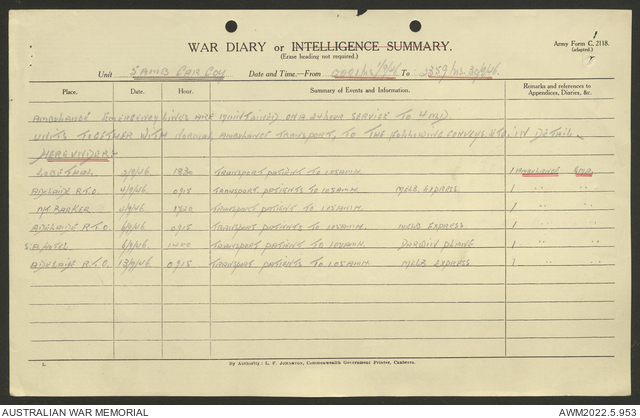 1
WAR DIARY or INTELLIGENCE SUMMARY.
(Erase heading not required.)
Army Form C. 2118.
(adapted.)
Unit 5 AMB CAR COY Date and Time.—From 0001hrs 1/9/46 To 2359hrs. 30/9/46.
Place. Date. Hour. Summary of Events and Information. Remarks and references to Appendices, Diaries, &c.
AMBULANCE EMERGENCY LINES ARE MAINTAINED ON A 24 HOUR SERVICE TO 4 MD.
UNITS TOGETHER WITH NORMAL AMBULANCE TRANSPORT, TO THE FOLLOWING CONVOYS, ETC, IN DETAIL
HEREUNDER:
LOBETHAL 3/9/46 1830 TRANSPORT PATIENT TO 105AMH. 1 AMBULANCE
ADELAIDE R.T.O. 4/9/46 0915 TRANSPORT PATIENTS TO 105AMH. MELB. EXPRESS 1 " "
MT BARKER 4/9/46 1920 TRANSPORT PATIENT TO 105AMH. 1 " "
ADELAIDE R.T.O. 6/9/46 0915 TRANSPORT PATIENTS TO 105AMH. MELB EXPRESS 1 " "
S.A. HOTEL 6/9/46 1400 TRANSPORT PATIENT TO 105AMH. DARWIN PLANE 1 " "
ADELAIDE R.T.O. 13/9/46 0915 TRANSPORT PATIENTS TO 105AMH. MELB EXPRESS 1 " "
1. By Authority: L. F. Johnston, Commonwealth Government Printer, Canberra.
AUSTRALIAN WAR MEMORIAL AWM2022.5.953